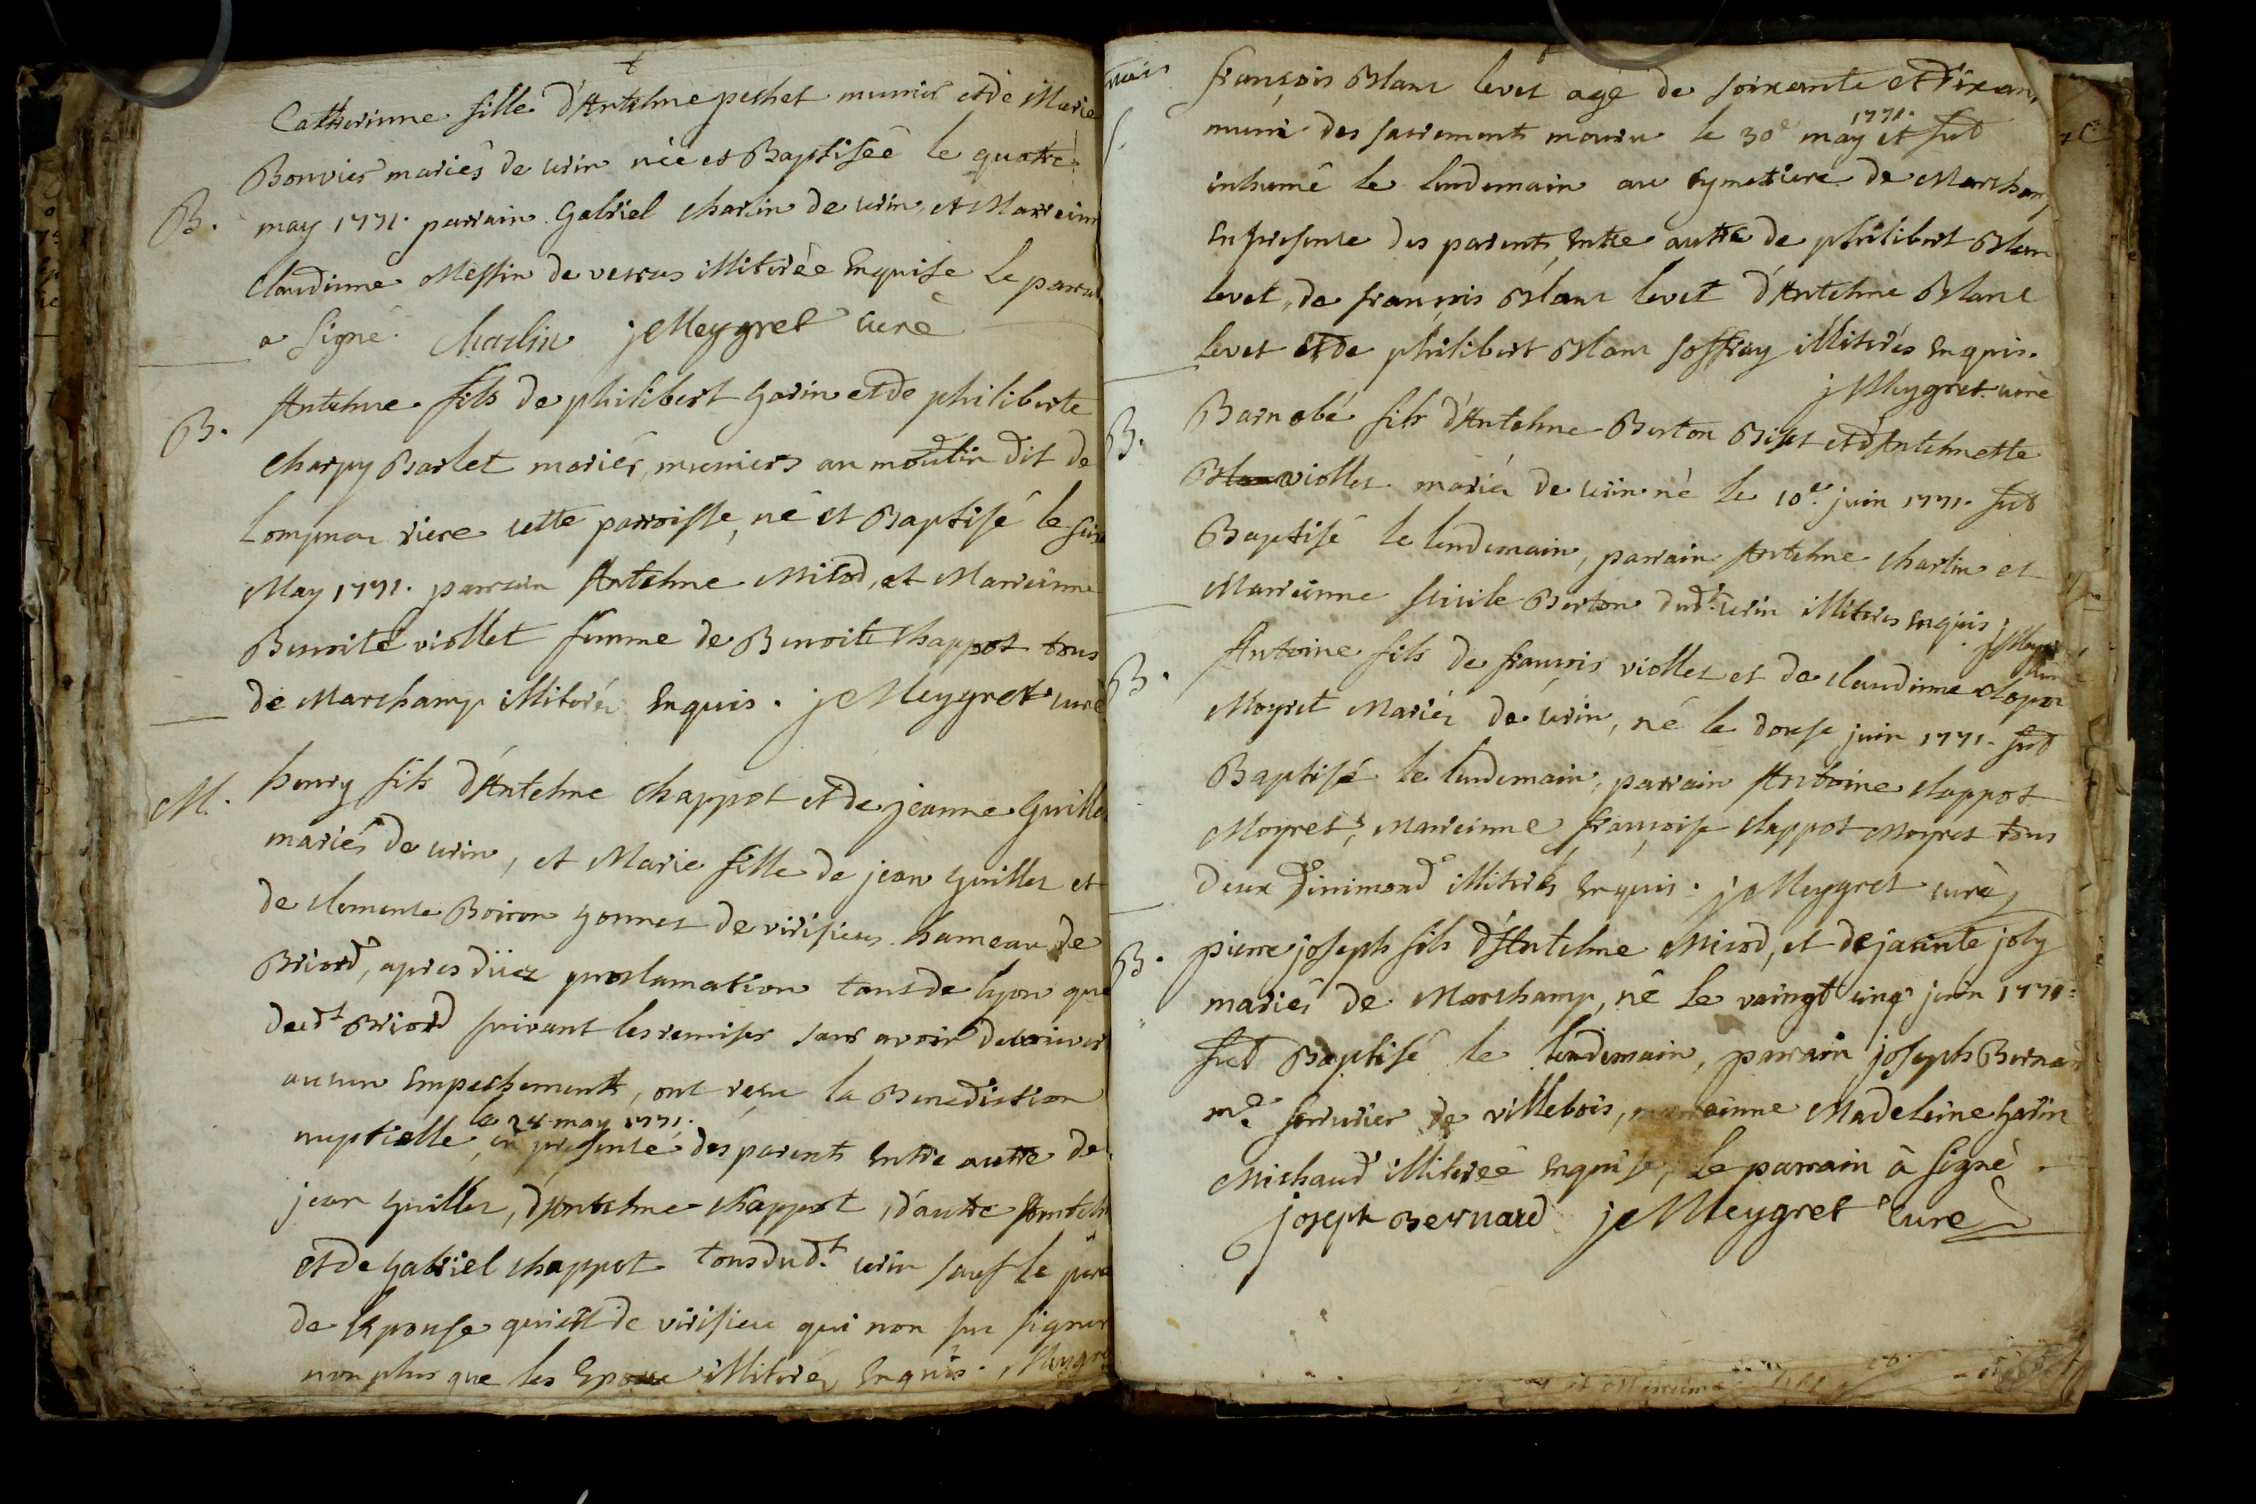 Catherinne fille d'Antelme pechet munier et de Marie
Bonvier mariés de cerin née et Baptiseé le quatre
B. may 1771. parrain Gabriel charlin de cerin, et Marreinne
claudinne Messin de illiterée Enquise Le parrain
a signé. Charlin j Meygret curé
B. Antelme fils de philibert garin et de philiberte
charpy Barlet mariés, muniers au moulin dit de
riere cette parroisse, né et Baptisé le
May 1771. parrain Antelme Milod, et Marreinne
Benoite viollet femme de Benoit Chappot tous
de Marchamp illiterés Enquis. j Meygret curé
M. henry fils d'Antelme Chappot et de jeanne Guillet
mariés de cerin, et Marie fille de jean Guillet et
de clemence Boiron gonnet de virisieux hameau de
Briord, apres proclamation tant de lyon que
dudt Briord suivant les remises sans avoir decouvert
aucun Empechements, ont reçu la Benediction
le 28 may 1771.
nuptielle, en presence des parents Entre autre de
jean Guillet, d'Antelme Chappot, d'autre Antelme
et de Gabriel chappot tous dudt. cerin sauf le pere
de l'Epouse qui est de virisieu qui non su signer
non plus que les Epoux illiterés Enquis. Meygret
françois Blanc levet agé de soixante et dix ans
1771.
muni des sacrements mouru le 30e may et fut
inhumé le lendemain au cymetiere de Marchamp
En presence des parents, Entre autre de philibert Blanc
levet, de françois Blanc levet d'Antelme Blanc
levet et de philibert Blanc Joffray illiterés Enquis.
j Meygret curé
B. Barnabé fils d'Antelme Berton Bizet et d'Antelmette
viollet mariés de cerin né le 10e. juin 1771. fut
Baptisé le lendemain, parrain Antelme charlin et
Marreinne Berton dudt. cerin illiteres Enquis j Meygret
curé
B. Antoine fils de françois viollet et de claudinne clapot
Moyret Mariés de cerin, né le douse juin 1771. fut
Baptisé le lendemain, parrain Antoine clappot
Moyret, Marreinne françoise clappot Moyret tous
deux d'inimond illiterés Enquis. j Meygret curé
B. pierre joseph fils d'Antelme Milod, et de jacinte joly
mariés de Marchamp, né le vaingt cinq juin 1771.
fut Baptisé le lendemain, parrain joseph Bernard
me serrurier de villebois, marrainne Madeleine garin
Michaud illitereé Enquise, Le parrain à signé
joseph Bernard j Meygret curé